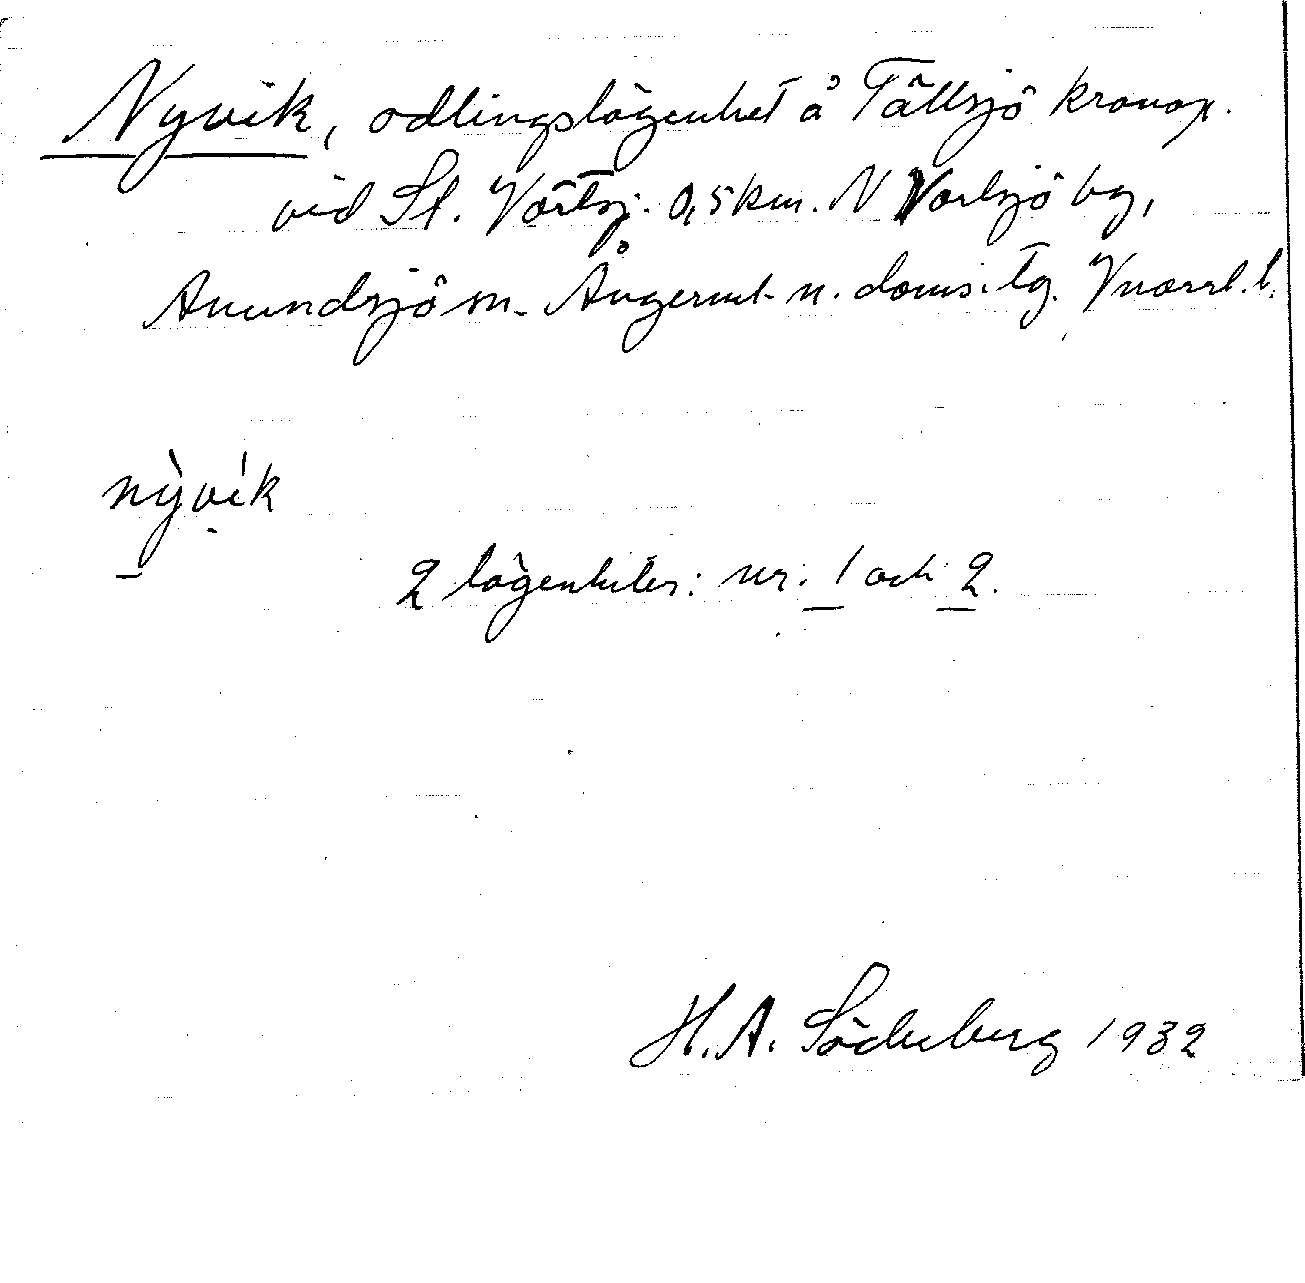 Nyvik, odlingslägenhet å Tällsjö kronop.
vid St. Vartsj. 0,5 km. N Vartsjö by,
Anundsjö sn. Ångerml. n. doms. tg. Vnorrl. l.
nỳvík
2 lägenheter: nr. 1 och 2.
H. A. Söderberg 1932